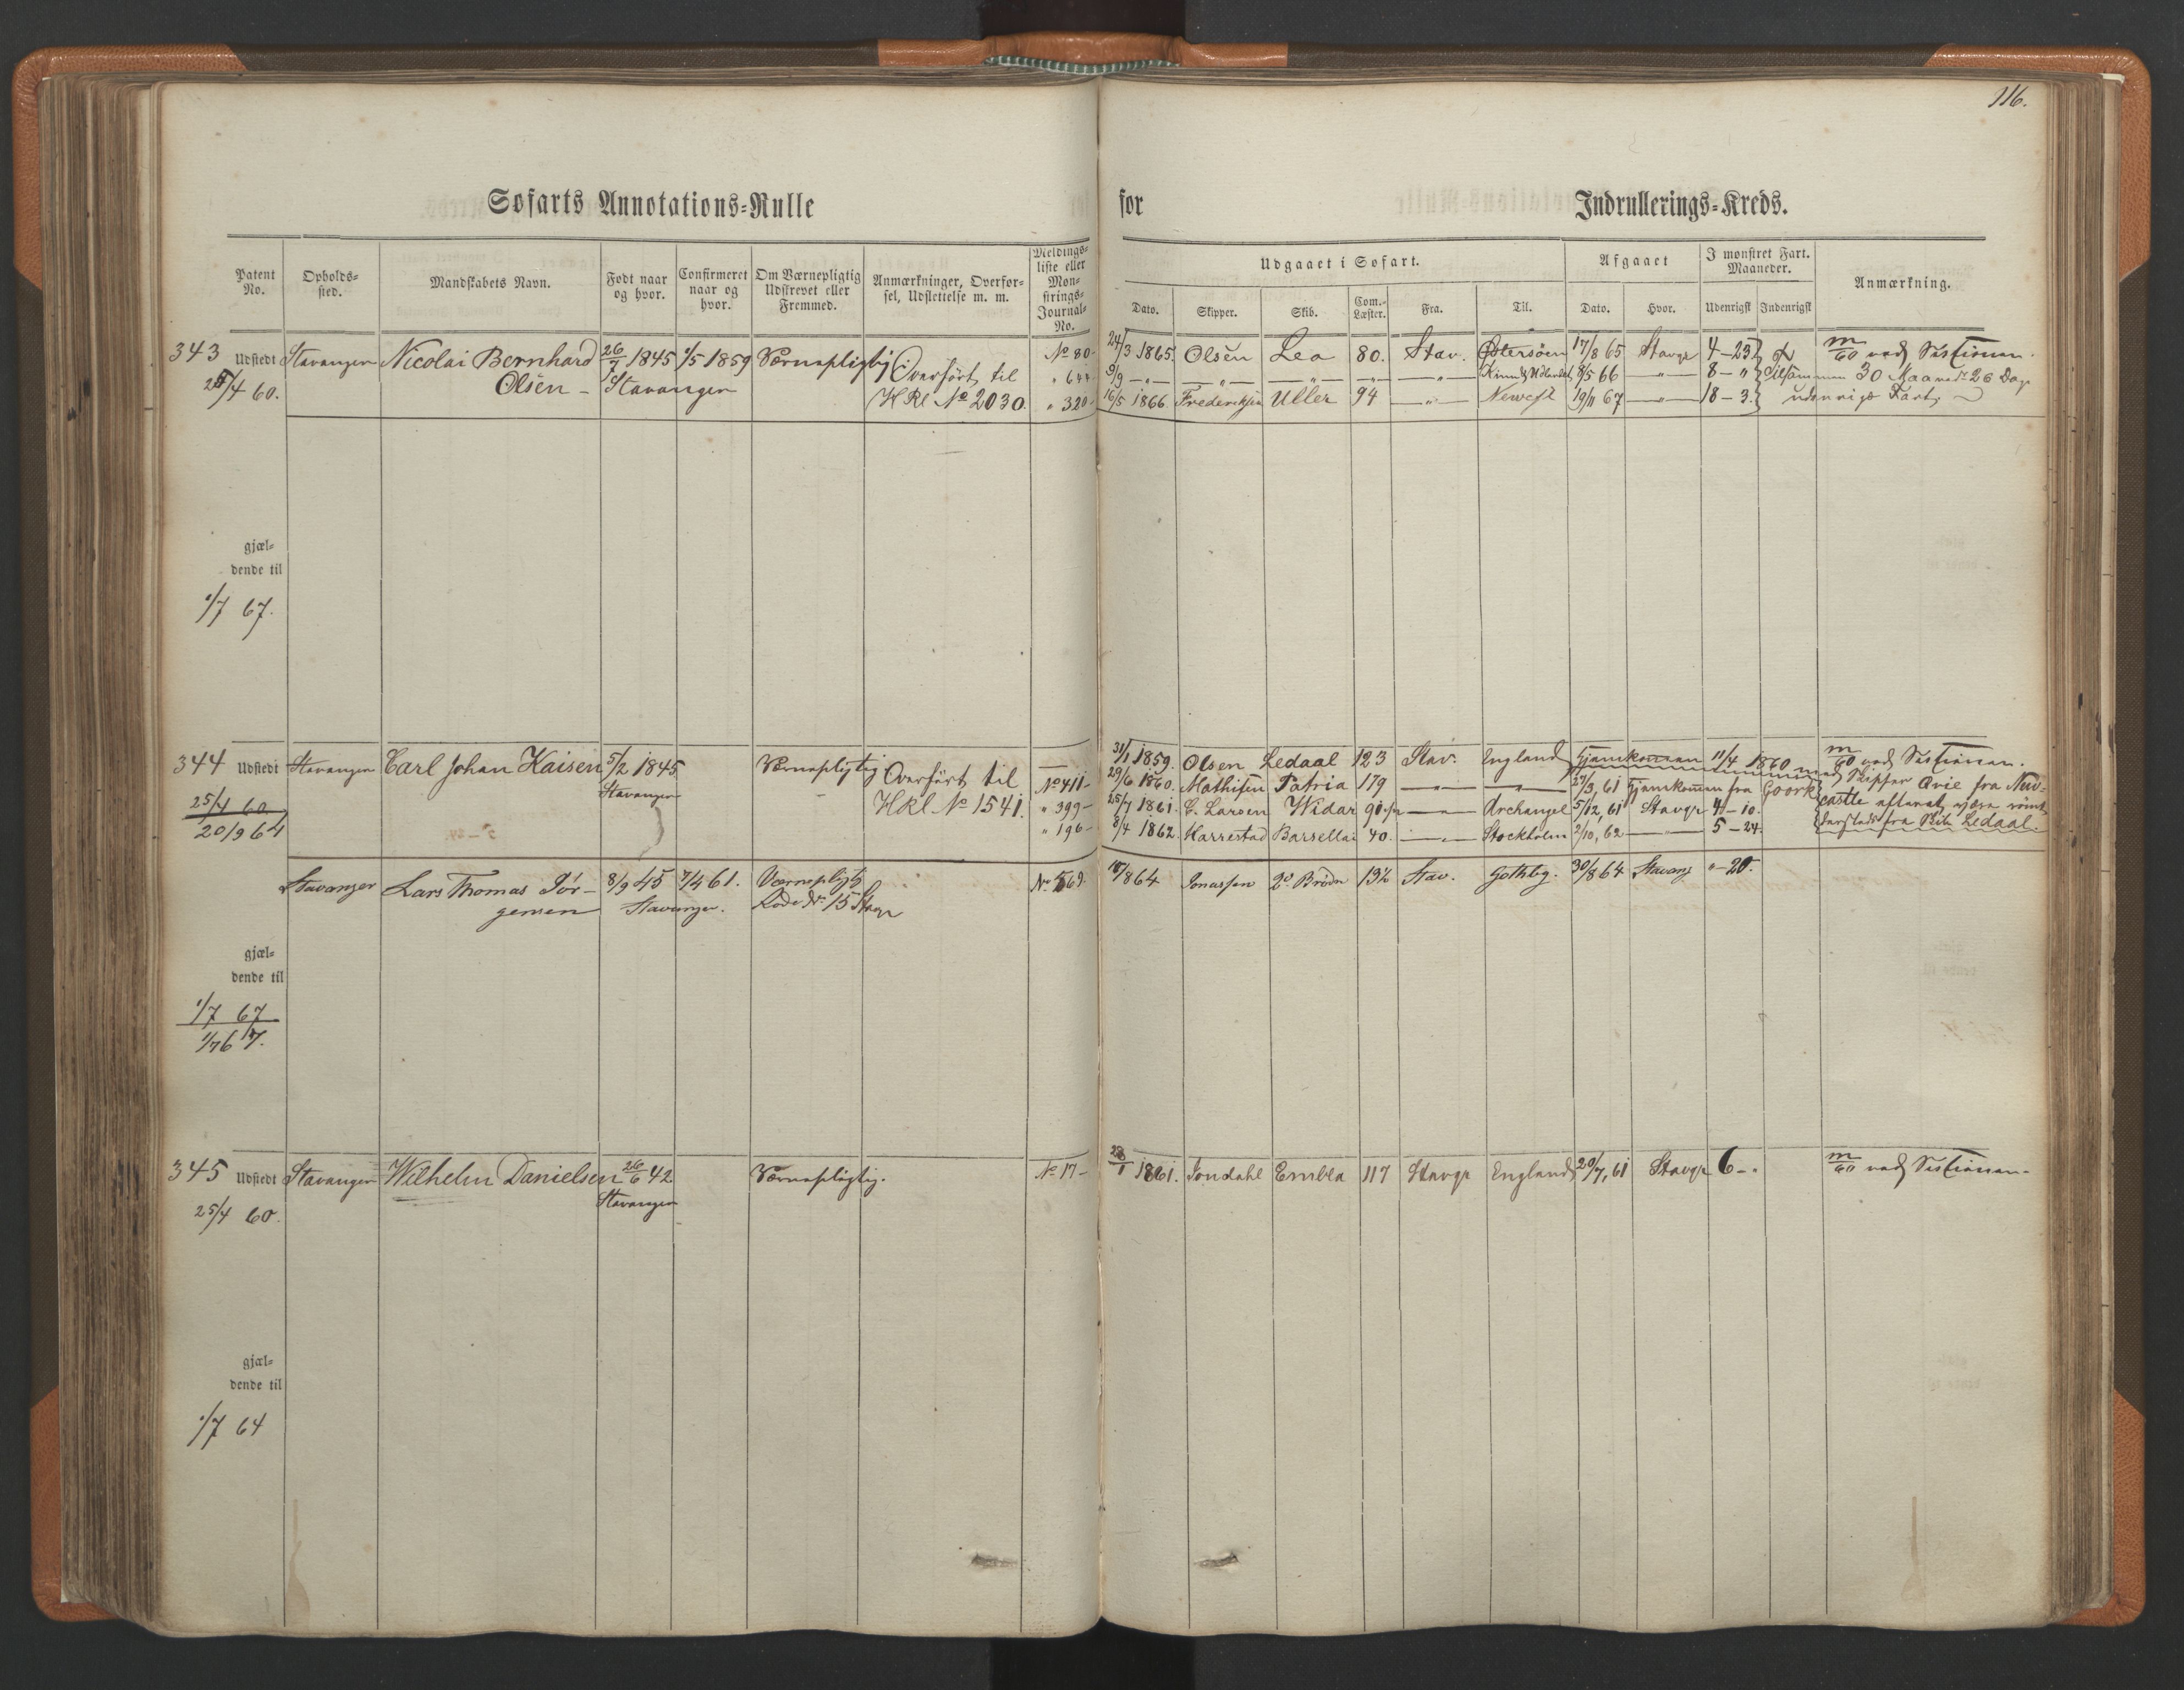 116.
Søfarts Annotations-Rulle for Indrullerings-Kreds.
Patent No.
Opholds-sted.
Mandskabets Navn.
Født naar og hvor.
Confirmeret naar og hvor.
Om Værnepligtig Udskrevet eller Fremmed.
Anmærkninger, Overførsel, Udslettelse m. m.
Meldings-liste eller Mon-strings-Journal-No.
Udgaaet i Søfart.
Dato.
Skipper.
Skib.
Com.-Læster.
Fra.
Til.
Afgaaet
Dato.
Hvor.
I mønstret Fart. Maaneder.
Udenrigsk
Indenrigsk
Anmærkning.
343 Udstedt Stavanger Nicolai Bernhard 26/7 1845 1/5 1859 Værnepligtig Overført til No 80 24/3 1865. Olsen Lea 80. Stav. Østersøen 17/8 65 Stavgr 4-23
25/4 60. Olsen - Stavanger HRl No 2030. " 644 9/9 - " - - " - - " - - " - - " - 8/5 66 - " - 8 - " Tilsammen 30 Maaneder 26 Dage
" 320 16/5 1866. Frederiksen Uller 94 - " - Newcstl 19/11 67 - " - 18-3. udenrigs Fart
gjæl-
dende til
1/7 67.
344 Udstedt Stavanger Carl Johan Kaisen 5/2 1845 Værnepligtig Overført til 31/1 1859. Olsen Ledaal 123 Stav. England Hjemkommen 11/4 1860 med Skipper Arie fra New-
25/4 60 Stavanger HRl No 1541. No 411 29/6 1860. Mathisen Patria 179 - " - - " - 27/3, 61 Hjemkommen fra castle efterat være rømt
20/9 64 " 399 25/7 1861. C. Larsen Widar 90 1/2 - " - Archangel 5/12, 61 Stavgr 4-10. fra Skib Ledaal.
" 196 8/4 1862. Harrestad Barsellai 40. - " - Stockholm 2/10, 62 - " - 5-24.
Stavanger Lars Thomas Jør- 8/9 45 7/4 61. Værnepligtig No 569. 10/8 64 Jonassen 2de Brødre 13 1/2 Stav. Gothbg. 30/8 64 Stavang "-20.
gensen Stavanger. Rode No 15 Stavgr
gjæl-
dende til
1/7 67
1/7 67.
345 Udstedt Stavanger Wilhelm Danielsen 26/6 42. Værnepligtig. No 17 28/1 1861. Jondahl Embla 117 Stavgr England 20/7, 61 Stavgr 6-"
25/4 60. Stavanger
gjæl-
dende til
1/7 64